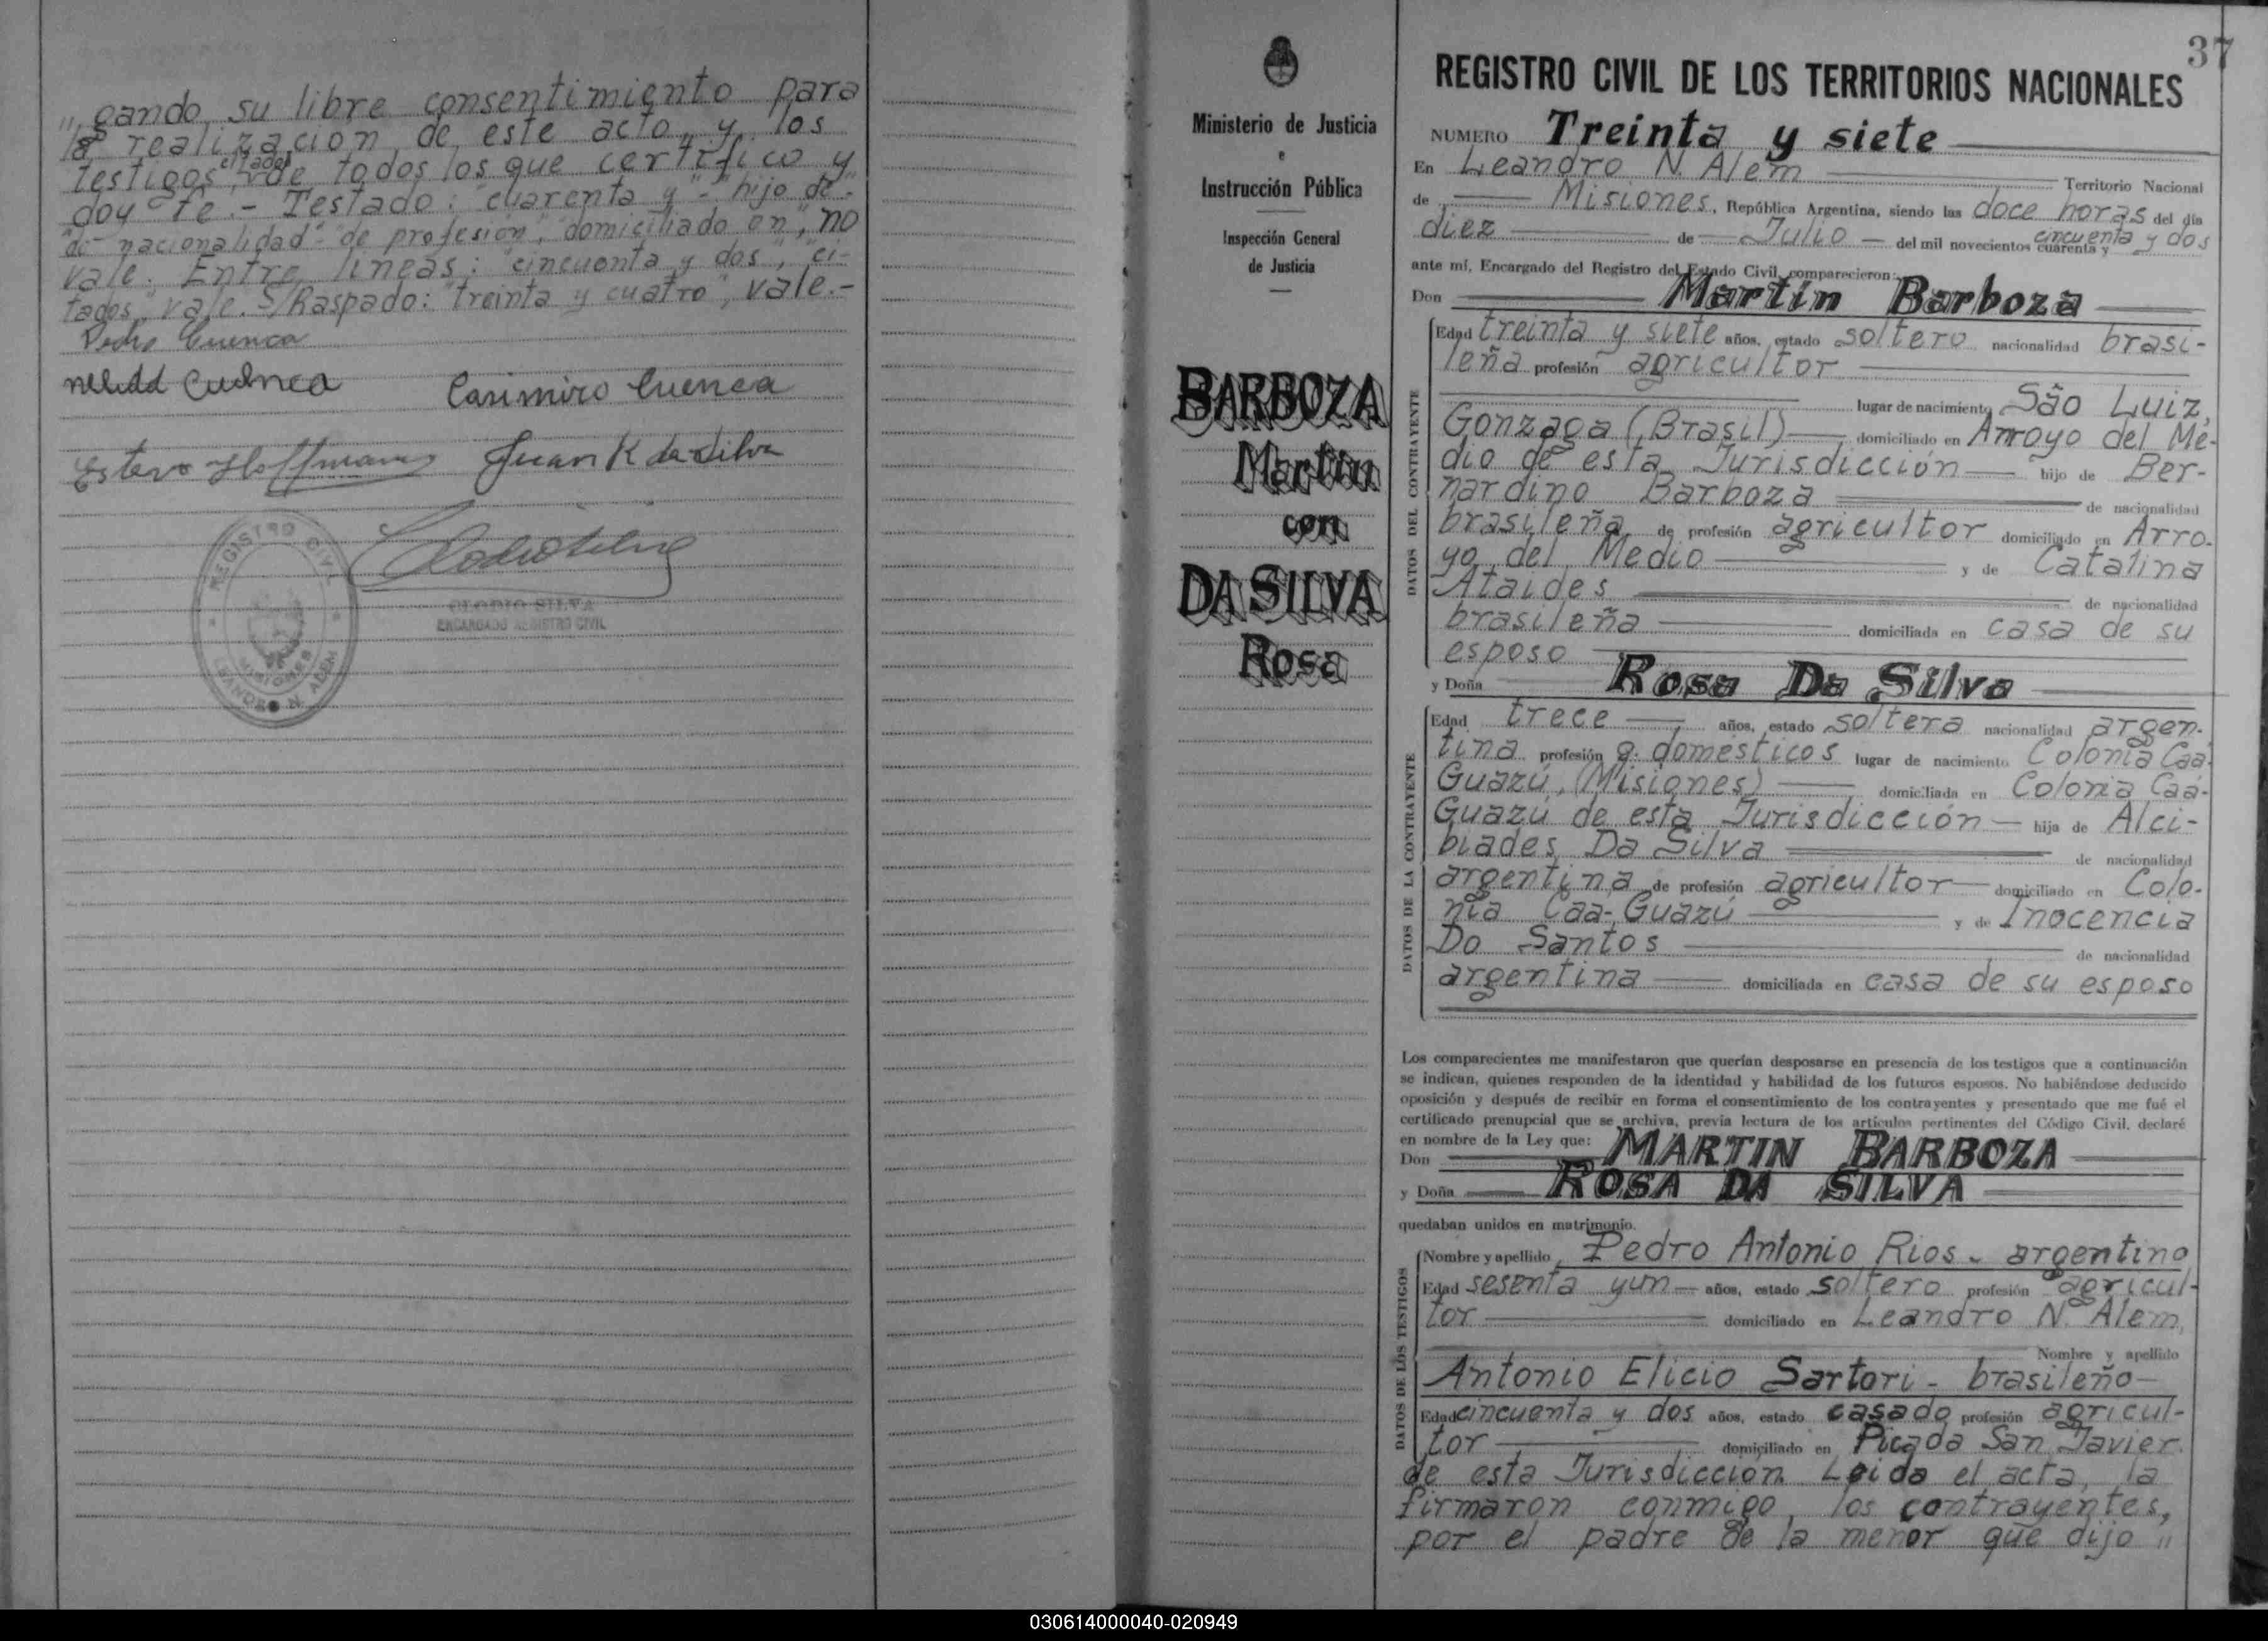 „ gando su libre consentimiento para
la realización de este acto, y los
testigos citados, de todos los que certifico y
doy fe.- Testado: "cuarenta y"- "hijo de"-
"de nacionalidad"- "de profesión", "domiciliado en", no
vale. Entre líneas: "cincuenta y dos", "ci-
tados", vale. S/Raspado: "treinta y cuatro", vale.-
Pedro Cuenca
Casimiro Cuenca
Juan K da Silva
REGISTRO CIVIL
MISIONES
LEANDRO N. ALEM
CLODIO SILVA
ENCARGADO REGISTRO CIVIL
Ministerio de Justicia
e
Instrucción Pública
Inspección General
de Justicia
BARBOZA
Martin
con
DA SILVA
Rosa
37
REGISTRO CIVIL DE LOS TERRITORIOS NACIONALES
NUMERO Treinta y siete
En Leandro N. Alem Territorio Nacional
de Misiones, República Argentina, siendo las doce horas del día
diez de Julio del mil novecientos cuarenta y cincuenta y dos
ante mí, Encargado del Registro del Estado Civil, comparecieron:
Don Martin Barboza
DATOS DEL CONTRAYENTE
Edad treinta y siete años, estado soltero nacionalidad brasi-
leña profesión agricultor
lugar de nacimiento São Luiz,
Gonzaga (Brasil) domiciliado en Arroyo del Me-
dio de esta Jurisdicción hijo de Ber-
nardino Barboza de nacionalidad
brasileña de profesión agricultor domiciliado en Arro-
yo del Medio y de Catalina
Ataides de nacionalidad
brasileña domiciliada en casa de su
esposo
y Doña Rosa Da Silva
DATOS DE LA CONTRAYENTE
Edad trece años, estado soltera nacionalidad argen-
tina profesión q. domésticos lugar de nacimiento Colonia Caá-
Guazú, (Misiones) domiciliada en Colonia Caá-
Guazú de esta Jurisdicción hija de Alci-
biades Da Silva de nacionalidad
argentina de profesión agricultor domiciliado en Colo-
nia Caa-Guazú y de Inocencia
Do Santos de nacionalidad
argentina domiciliada en casa de su esposo
Los comparecientes me manifestaron que querían desposarse en presencia de los testigos que a continuación
se indican, quienes responden de la identidad y habilidad de los futuros esposos. No habiéndose deducido
oposición y después de recibir en forma el consentimiento de los contrayentes y presentado que me fué el
certificado prenupcial que se archiva, previa lectura de los artículos pertinentes del Código Civil, declaré
en nombre de la Ley que:
Don MARTIN BARBOZA
y Doña ROSA DA SILVA
quedaban unidos en matrimonio.
DATOS DE LOS TESTIGOS
Nombre y apellido Pedro Antonio Rios - argentino
Edad sesenta y un años, estado soltero profesión agricul-
tor domiciliado en Leandro N. Alem,
Nombre y apellido
Antonio Elicio Sartori - brasileño
Edad cincuenta y dos años, estado casado profesión agricul-
tor domiciliado en Picada San Javier
de esta Jurisdicción. Leida el acta, la
firmaron conmigo, los contrayentes,
por el padre de la menor que dijo „
030614000040-020949